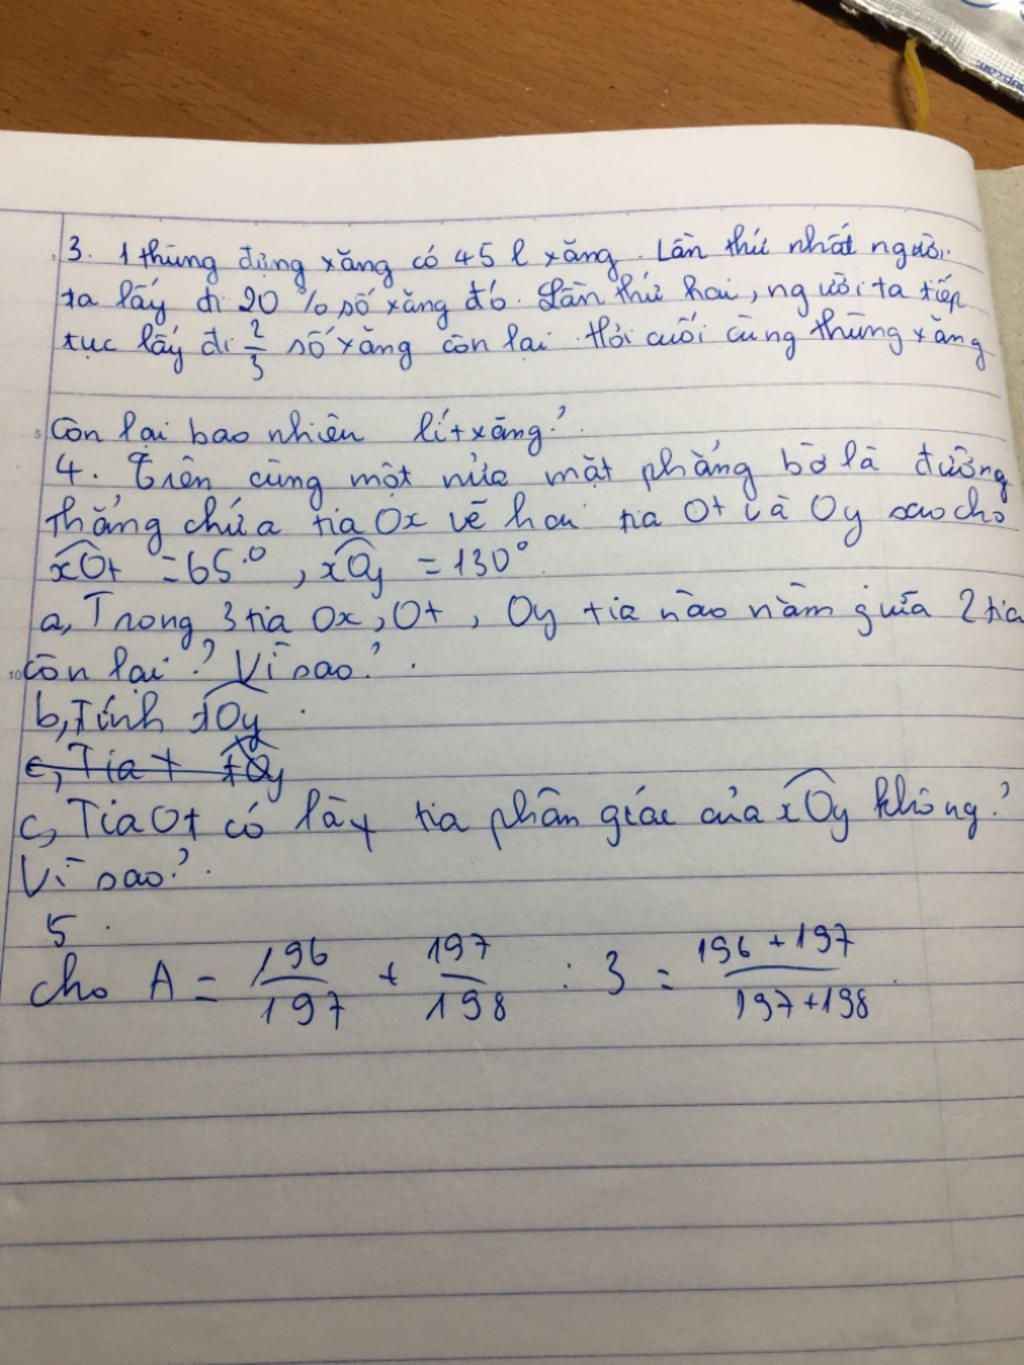 3. 1 thùng đựng xăng có 45 l xăng. Lần thứ nhất người
ta lấy đi 20 % số xăng đó. Lần thứ hai, người ta tiếp
tục lấy đi 2/3 số xăng còn lại. Hỏi cuối cùng thùng xăng
còn lại bao nhiên lít xăng?
4. Trên cùng một nửa mặt phẳng bờ là đường
thẳng chứa tia Ox vẽ hai tia Ot và Oy sao cho
xOt = 65°, xOy = 130°
a, Trong 3 tia Ox, Ot, Oy tia nào nằm giữa 2 tia
còn lại? Vì sao?
b, Tính tOy
c, Tia t tOy
c, Tia Ot có là tia phân giác của xOy không?
Vì sao?
5.
cho A = 196/197 + 197/198 : 3 = 196 + 197/197 + 198